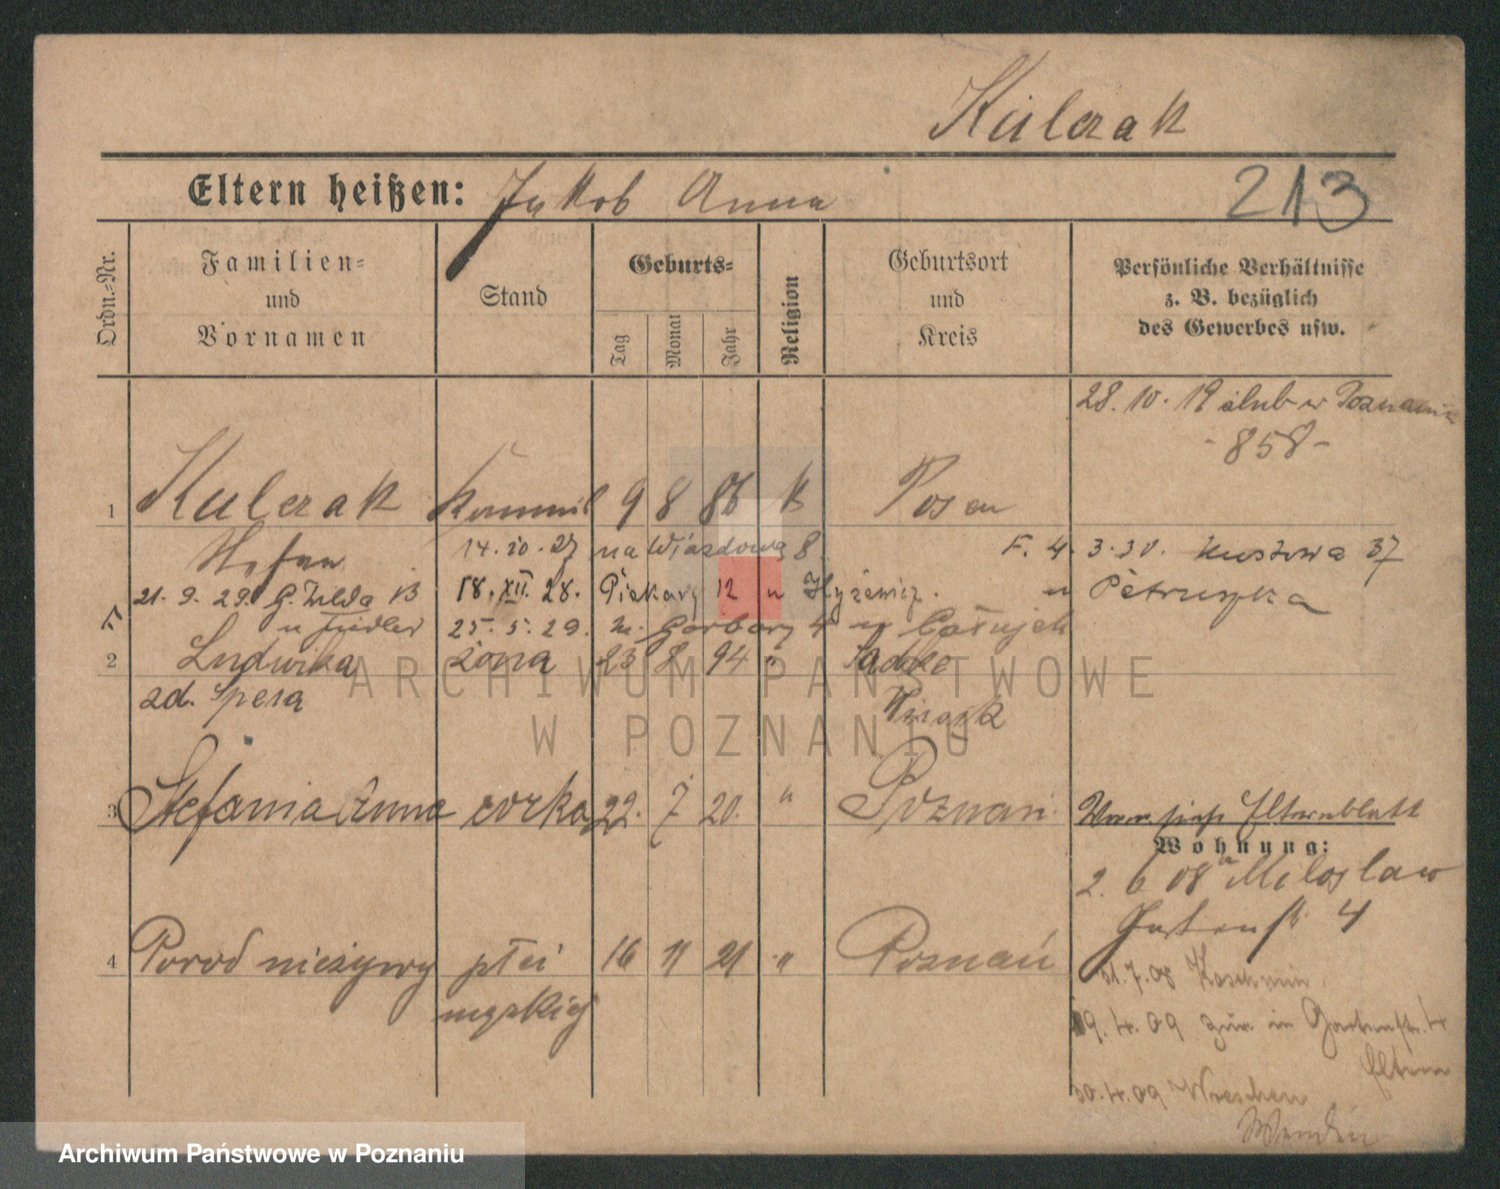 Kulczak
Eltern heißen: Jakob Anna
213
Ordn.-Nr.
Familien-
und
Vornamen
Stand
Geburts-
Tag
Monat
Jahr
Religion
Geburtsort
und
Kreis
Persönliche Verhältnisse
z. B. bezüglich
des Gewerbes usw.
28.10.19 ślub w Poznaniu
- 858 -
1 Kulczak 9 8 86 K Posen
Stefan 14.10.27 na Wiazdową 8 F. 4.3.30. 37
21.9.29. G. Wilda 13 18.XII.28. Piekary 12 u Hyżewicz. u Pietruszka
u Fiedler 25.5.29. Garbary 4 u
2 Ludwika żona 23 8 94 "
zd. Spera
3 Stefania Anna córka 22. 7 20. " Poznań Elternblatt
Wohnung:
2.6 08 Miloslaw
4
4 Poród nieżywy płci 16 11 21 " Poznań
męskiej
31.7.08 Koschmin
19.4.09 zur. in Gartenstr. 4
Eltern
30.4.09 Wreschen
ARCHIWUM PAŃSTWOWE
W POZNANIU
Archiwum Państwowe w Poznaniu